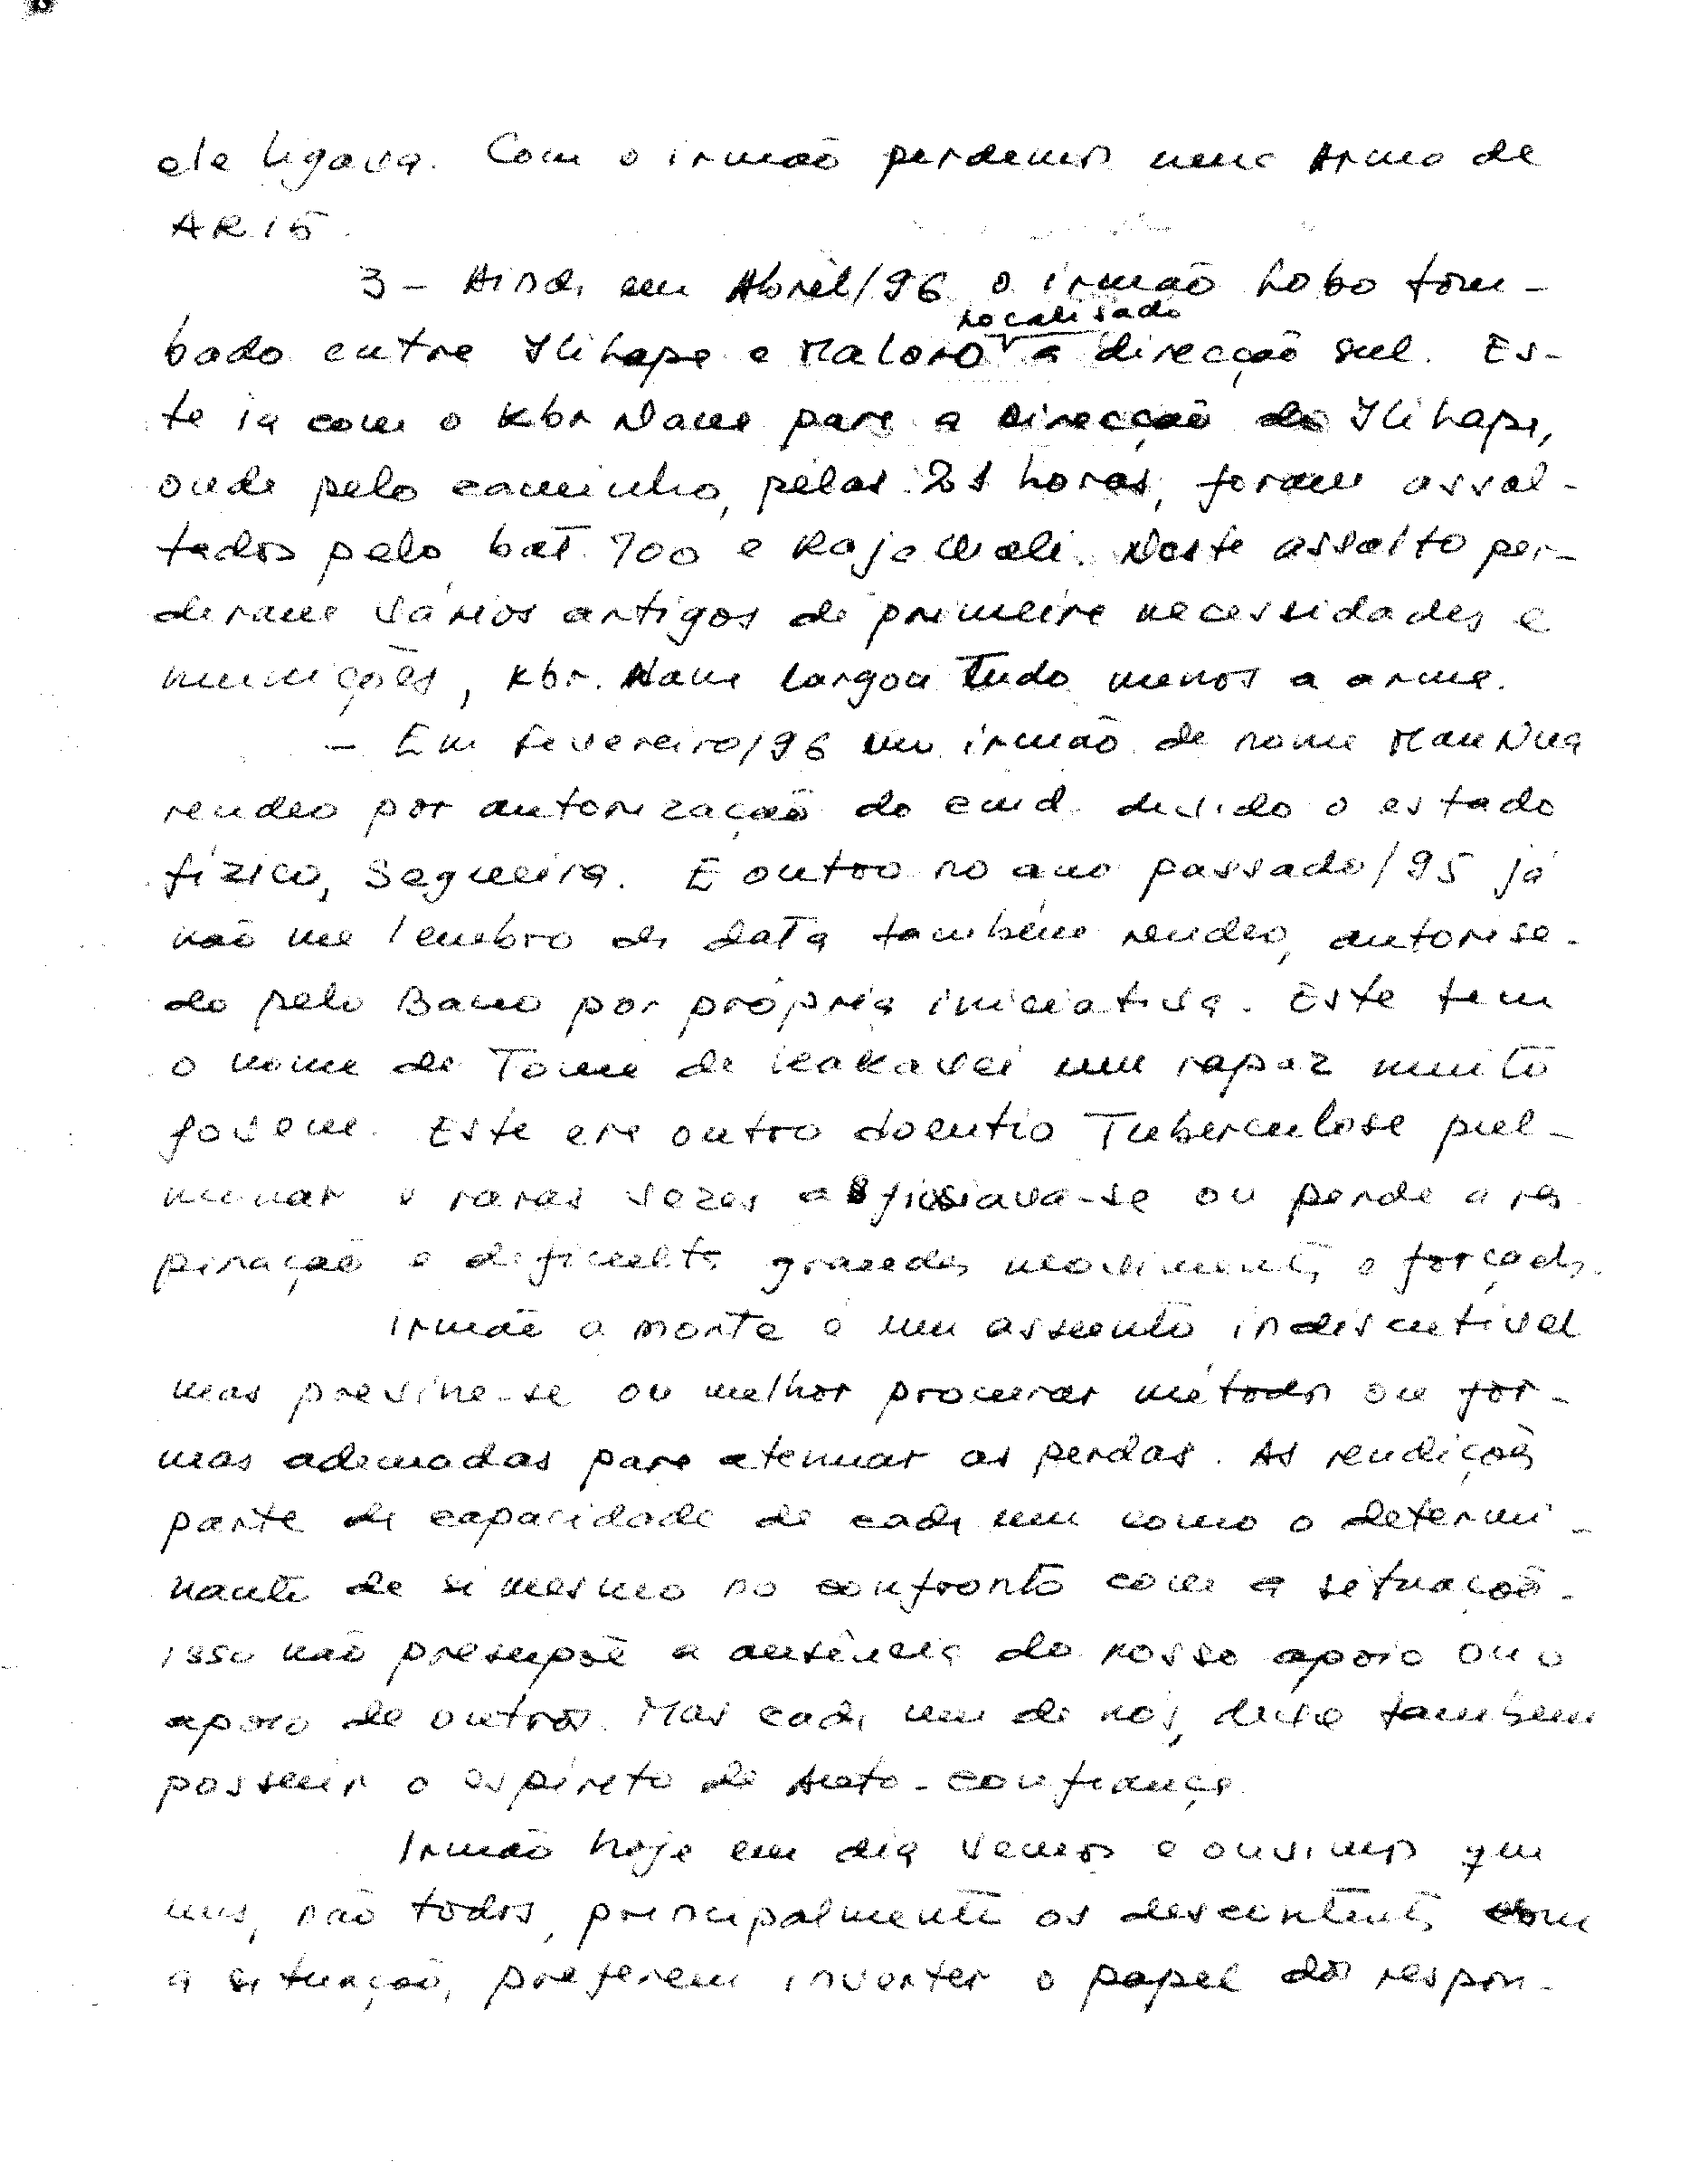 ele ligava. Com o irmão perdemos uma Arma de
AR15.
3 - Ainda em Abril/96 o irmão Lobo tom-
localisado
bado entre Ilihape e Maloro a direcção sul. Es-
te ia com o Kbr Name para a direcção do Ilihape,
onde pelo caminho, pelas 21 horas, foram assal-
tados pelo bat. 700 e Rajawali. Neste assalto per-
deram vários artigos de primeira necessidades e
munições, Kbr. Name largou tudo menos a arma.
- Em Fevereiro/96 um irmão de nome Mau Nua
rendeo por autorização do cmd. devido o estado
fízico, Segueira. E outro no ano passado/95 já
não me lembro da data também rendeo, autorisa-
do pelo Bano por própria iniciativa. Este tem
o nome de Tome de um rapaz muito
jovem. Este era outro doentio Tuberculose pul-
munar e raras vezes asfixiava-se ou perde a res
piração e dificulta grandes movimentos e forçados.
Irmão a morte é um assunto indiscutivel
mas previne-se ou melhor procurar métodos ou for-
mas adecuadas para atenuar as perdas. As rendições
parte da capacidade de cada um como o determi-
nante de si mesmo no confronto com a situação.
Isso não presupõe a ausência do nosso apoio ou o
apoio de outros. Mas cada um de nós, deve tambem
possuir o espirito de Auto-confiança.
Irmão hoje em dia vemos e ouvimos que
uns, não todos, principalmente os descontentes com
a situação, preferem inverter o papel dos respon-